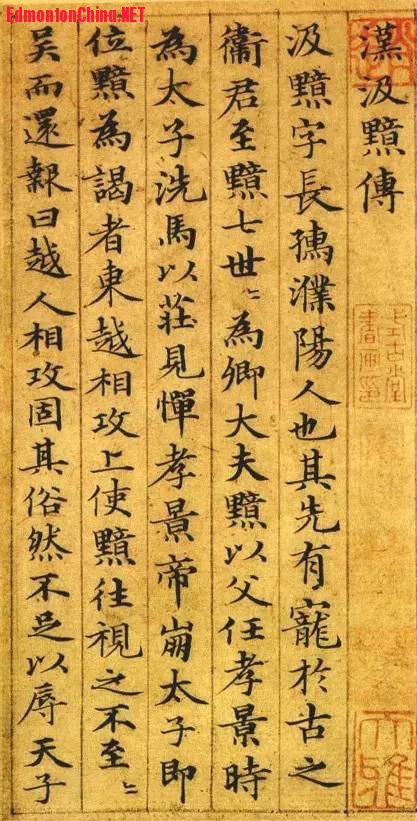 EdmontonChina.NET
漢汲黯傳
汲黯字長孺濮陽人也其先有寵於古之
衛君至黯七世〻為卿大夫黯以父任孝景時
為太子洗馬以莊見憚孝景帝崩太子即
位黯為謁者東越相攻上使黯往視之不至〻
吴而還報曰越人相攻固其俗然不足以辱天子
大雅